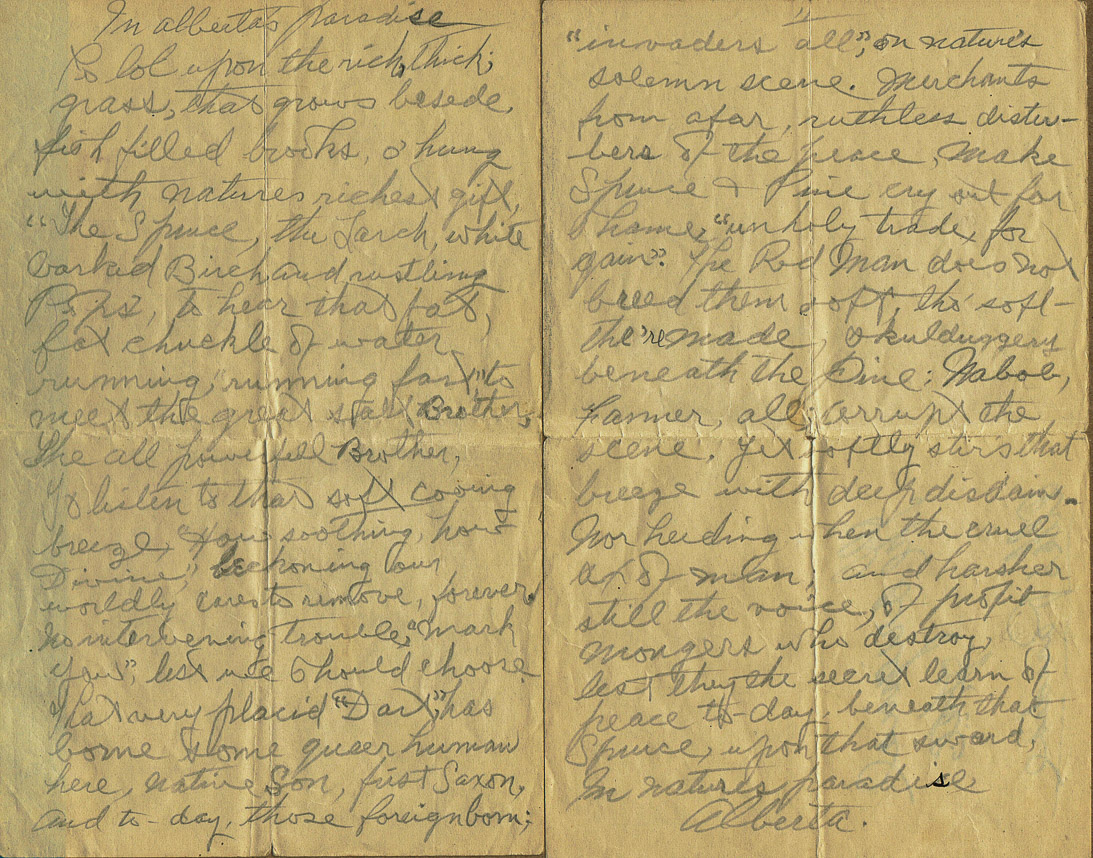 In alberta's paradise
To lol upon the rich, thick;
grass, that grows beside,
fish filled brooks, o' hung
with natures riches gift,
"The Spruce, the Larch, white
barked Birch and rustling
Pops", to hear that fat,
fat chuckle of water
running, "running fast," to
meet the great salt Brother,
The all powerfull Brother,
To listen to that soft cooing
breeze, "How soothing, how
Divine," beckoning our
worldly cares to remove, forever,
no intervening trouble, "mark
you", lest we should choose
That very placid "Dart," has
borne some queer human
here, native Son, first Saxon,
and to-day, those foreign born;
"invaders all", on nature's
solemn scene. Merchants
from afar, ruthless distur-
bers of the peace, make
Spruce & Pine cry out for
shame, "unholy trade, for
gain". The Red Man does not
breed them soft, tho' soft-
the're made, skulduggery
beneath the Pine; Nabob,
Farmer, all; corrupt the
scene. Yet softly stirs that
breeze with deep disdain.
Nor heeding when the cruel
ax of man, and harsher
still the voice, of profit
mongers who destroy,
lest they the secret learn of
peace to-day beneath that
Spruce, upon that sward,
In natures paradise
Alberta.